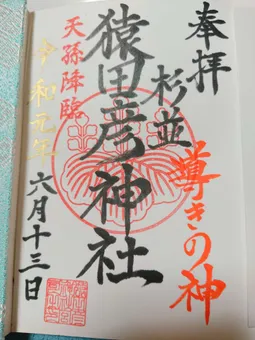 奉拝
導きの神
杉並
猿田彦神社
天孫降臨
令和元年
六月十三日